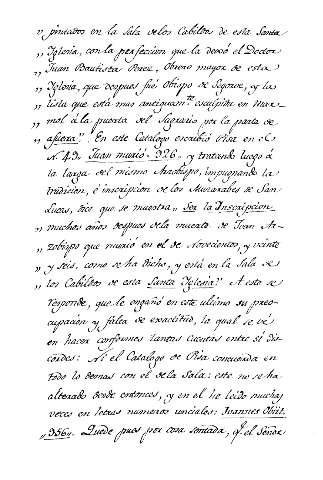 „ pintados en la Sala delos Cabildos de esta Santa
„ Yglesia, con la perfeccion que la dexó el Doctor
„ Juan Bautista Perez, Obrero mayor de esta
„ Yglesia, que despues fué Obispo de Segorve, y la
„ lista que está mas antiguam.te esculpida en Mar-
„ mol á la puerta del Sagrario por la parte de
„ afuera." En este Catalogo escribió Pisa en el
N. 43„ Juan murió 926„ y tratando luego á
la larga del mismo Arzobispo, impugnando la
tradición, é inscripcion de los Muzarabes de San
Lucas, dice que se muestra„ Ser la Inscripcion
„ muchos años despues dela muerte de Juan Ar-
„ zobispo que murió en el de Novecientos, y veinte
„ y seis, como se ha dicho, y está en la Sala de
„ los Cabildos de esta Santa Yglesia." A esto se
responde, que le engañó en esto ultimo su preo-
cupacion y falta de exactitud, la qual se vé
en hacer conformes tantas cuentas entre si dis-
cordes: Ni el Catalogo de Pisa concuerda en
todo lo demas con el dela Sala: este no se ha
alterado desde entonces, y en el he leido muchas
veces en letras numeros unciales: Joannes Obiit
„ 956„ Quede pues por cosa sentada, q.e el Señor